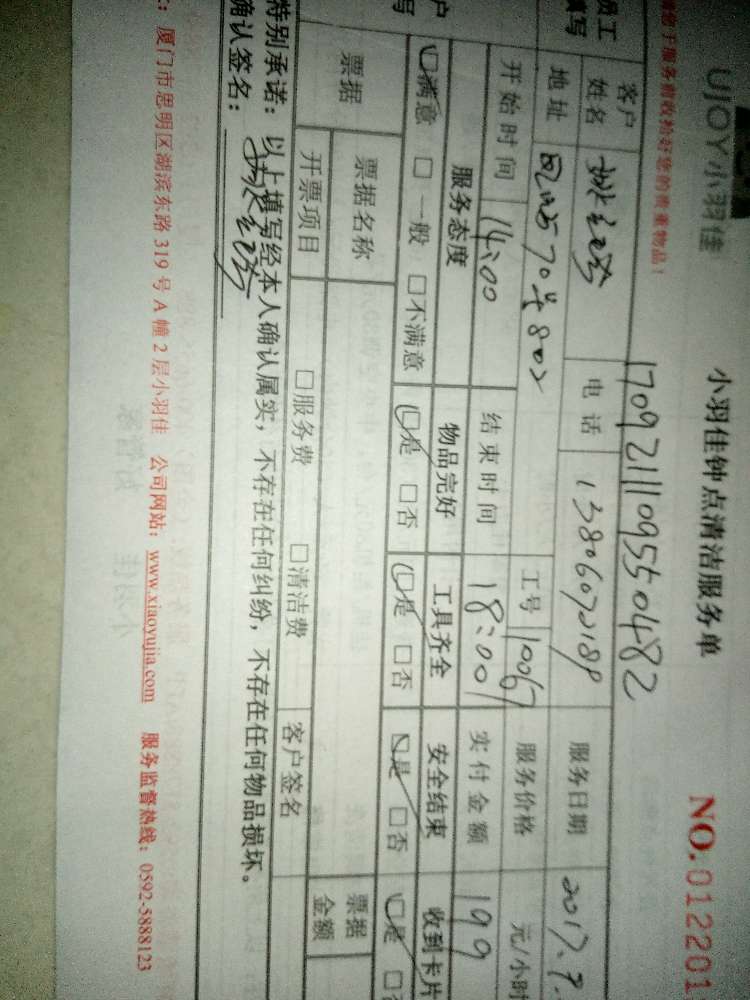 UJOY小羽佳
小羽佳钟点清洁服务单
NO.012201
于服务前收拾好您的贵重物品！
170921110955 0482
员工
填写
客户
姓名
电话
服务日期 2017.9.
地址
570号802
工号 10067
服务价格 元/小时
开始时间 14:00
结束时间 18:00
实付金额 199
户
写
服务态度 物品完好 工具齐全 安全结束 收到卡片
☑满意 □一般 □不满意 ☑是 □否 ☑是 □否 ☑是 □否 ☑是 □
票据 票据名称 票据
金额
开票项目 □服务费 □清洁费 客户签名
特别承诺：以上填写经本人确认属实，不存在任何纠纷，不存在任何物品损坏。
确认签名：
：厦门市思明区湖滨东路 319 号 A 幢 2 层小羽佳 公司网站：www.xiaoyujia.com 服务监督热线：0592-5888123